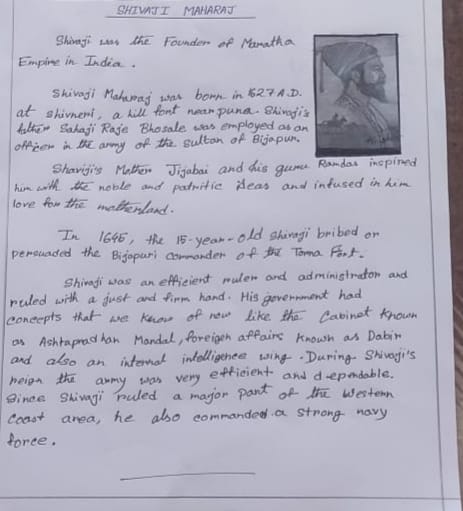 SHIVAJI MAHARAJ
Shivaji was the Founder of Maratha
Empire in India.
Shivaji Maharaj was born in 1627 A.D.
at shivneri, a hill fort near puna. Shivaji's
father Sahaji Raje Bhosale was employed as an
officer in the army of the sultan of Bijapur.
Shaviji's Mother Jijabai and his guru Ramdas inspired
him with the noble and patritic ideas and infused in him
love for the motherland.
In 1645, the 15-year-old Shivaji bribed or
persuaded the Bijapuri commander of the Torna Fort.
Shivaji was an efficient ruler and administrator and
ruled with a just and firm hand. His government had
concepts that we know of now like the Cabinet Known
as Ashtapradhan Mandal, foreigen affairs known as Dabir
and also an internal intelligence wing. During Shivaji's
reign the army was very efficient and dependable.
Since Shivaji ruled a major part of the Western
Coast area, he also commanded a strong navy
force.